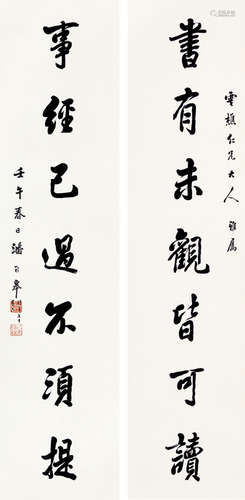 書有未觀皆可讀
雲樵仁兄大人雅屬
事經已過不須提
壬午春日潘齡皋